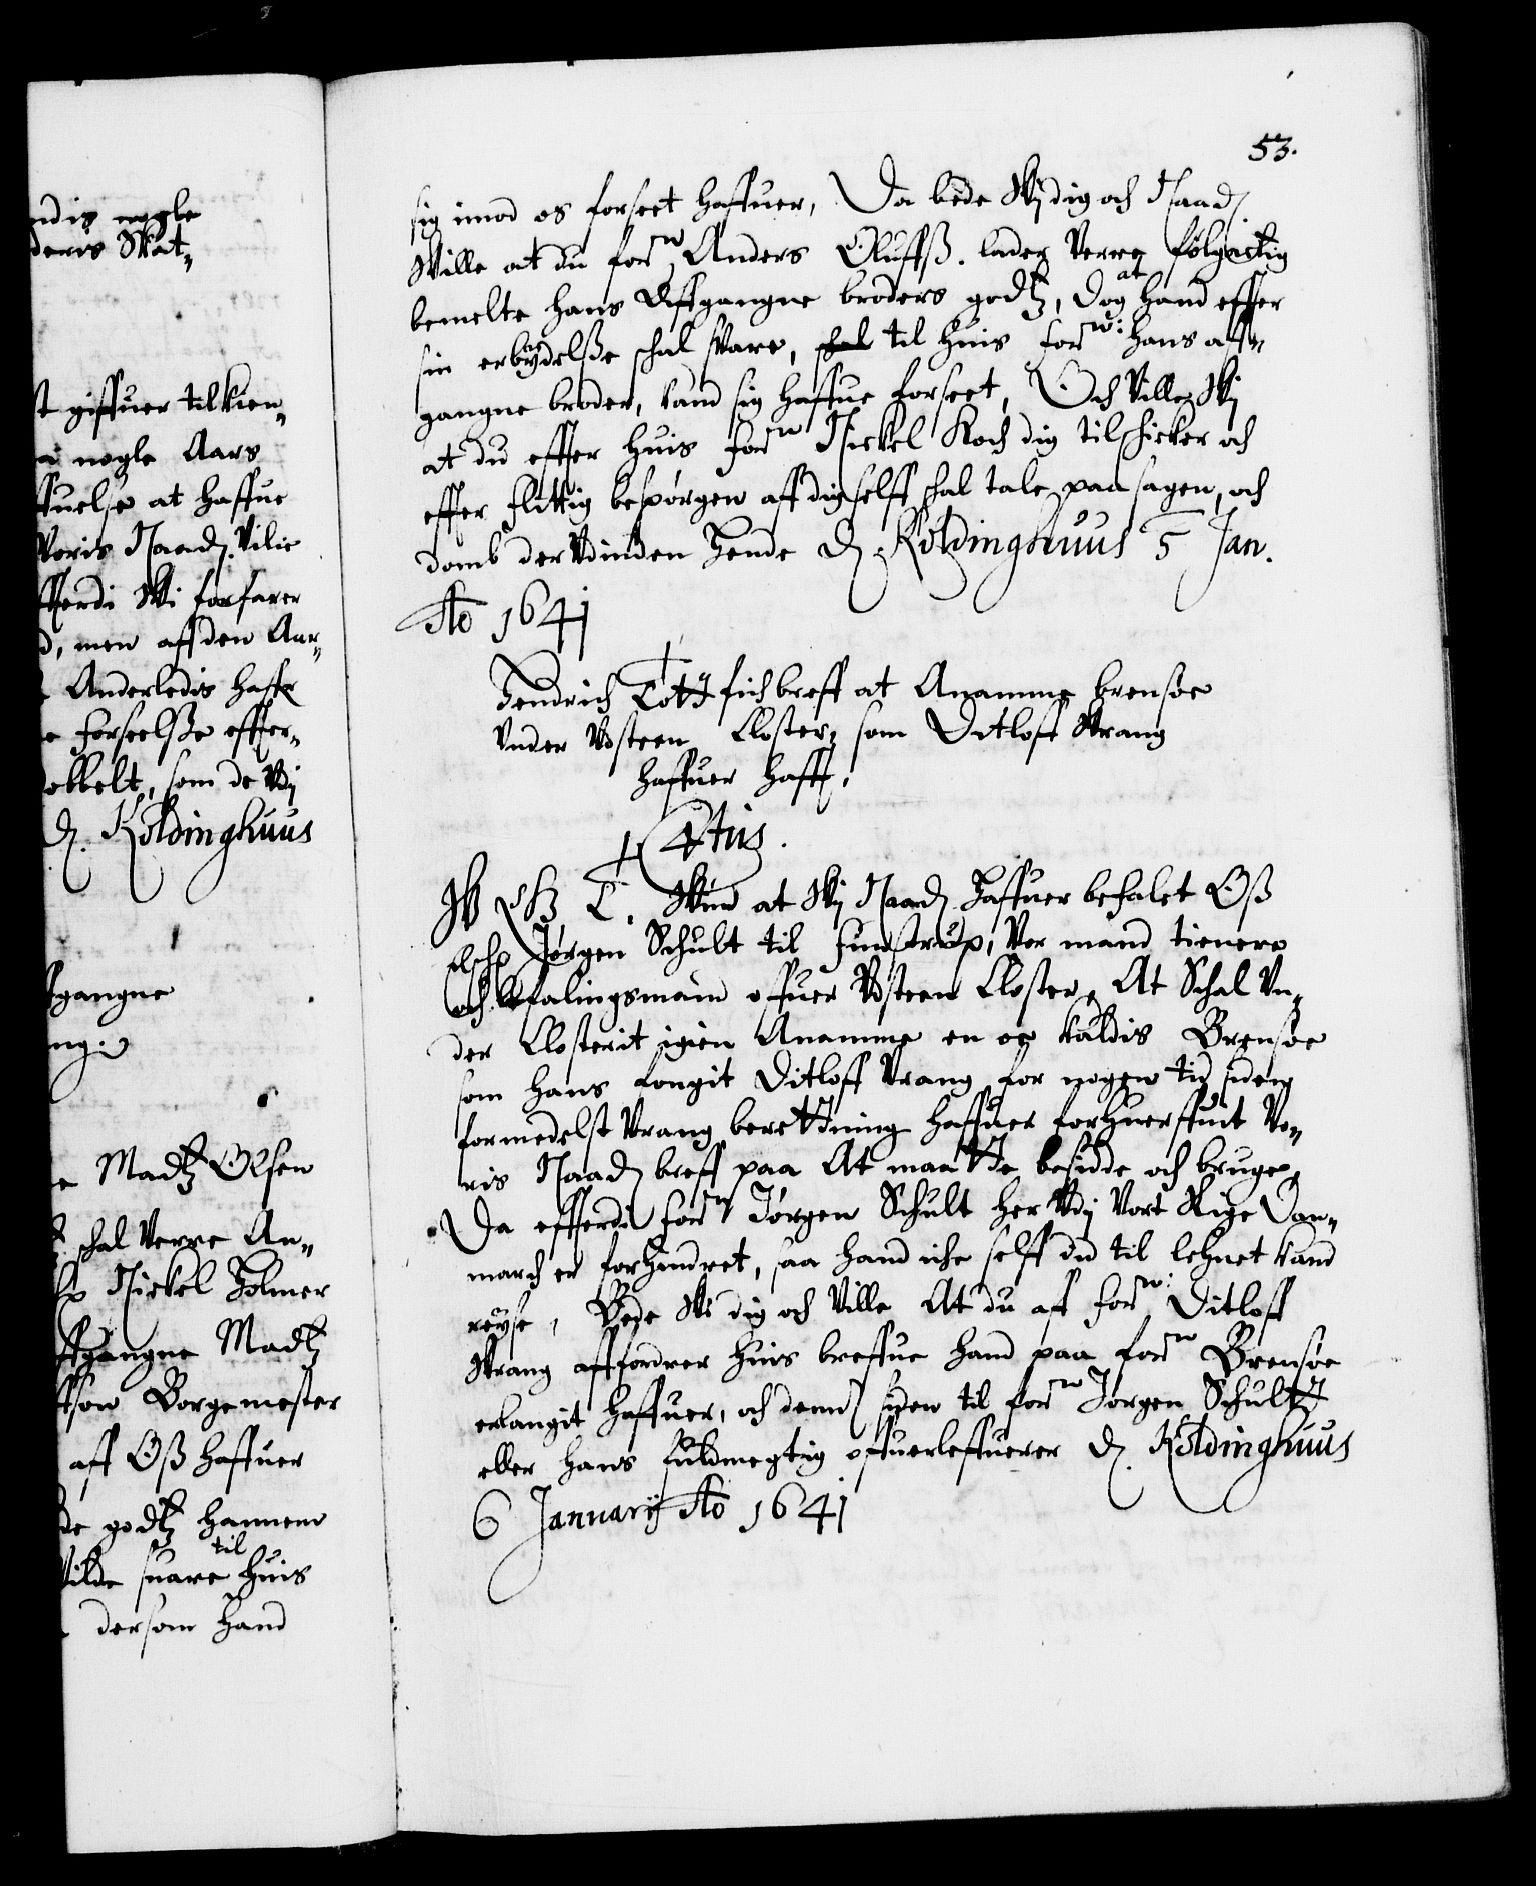 ndis nogle
deris Skat-
t giffuer tilkien-
a nogle Aars
ffuelse at haffue
Voris Naad. Vilie
fferdi Wi forfarer
d, men aff den Aar-
Anderledis haffr
e forseelsße effter-
obbelt, som de Vdj
D. Koldinghuus
gangne
ng.
e Madtz Olsen
schal Verre An-
Nickel Holmer
ffgangne Madtz
tson Borgemester
aff Oß haffuer
de godtz hannem
til
Vilde suare huis
dersom hand
53.
sig imod os forseet haffuer, Da bede Wj dig och Naad.
Wille at du forne Anders Oluffß. lader Verre følgactig
bemelte hans Affgangne broders godtz, dog at hand effter
sin erbydelße schal svare, schal til huis forne: hans aff-
gangne broder, kand sig haffue forseet, Och Ville Wj
at du effter huis forne Nickel Koch dig tilschicker och
effter flittig bespørgen aff dig selff schal tale paa sagen, och
domb der Vdinden hende D. Koldinghuus 5 Jan.
Ao 1641
Hendrich Tott fich breff at Anamme brensøe
Vnder Vosteen Closter, som Ditloff Wrang
haffuer hafft.
C 4tus.
W G T. Wiid at Wj Naad. haffuer befalet Oß
elschl. Jørgen Schult til Finstrup, Vor mand tienere
och befalingsmand offuer Vosteen Closter, At Schal Vn-
der Closterit igien Anamme en øe kaldis Brensøe
som hans longit Ditloff Vrang for nogen tid siden
formedelst Vrang berettning haffuer forhuerffuit Vo-
ris Naad. breff paa At maatte besidde och bruge,
Da efftterdi forne Jørgen Schult her Vdj Vort Rige Dan-
march er forhindret, saa hand iche selff da til lehnet kand
reyse, Bede Wi dig och Ville At du aff forne: Ditloff
Wrang affordrer huis breffue hand paa forne Brensøe
erlangit haffuer, och dennd siden til forne Jørgen Schultt
eller hans fuldmegtig offuerleffuerer D. Koldinghuus
6 Januarij Ao 1641